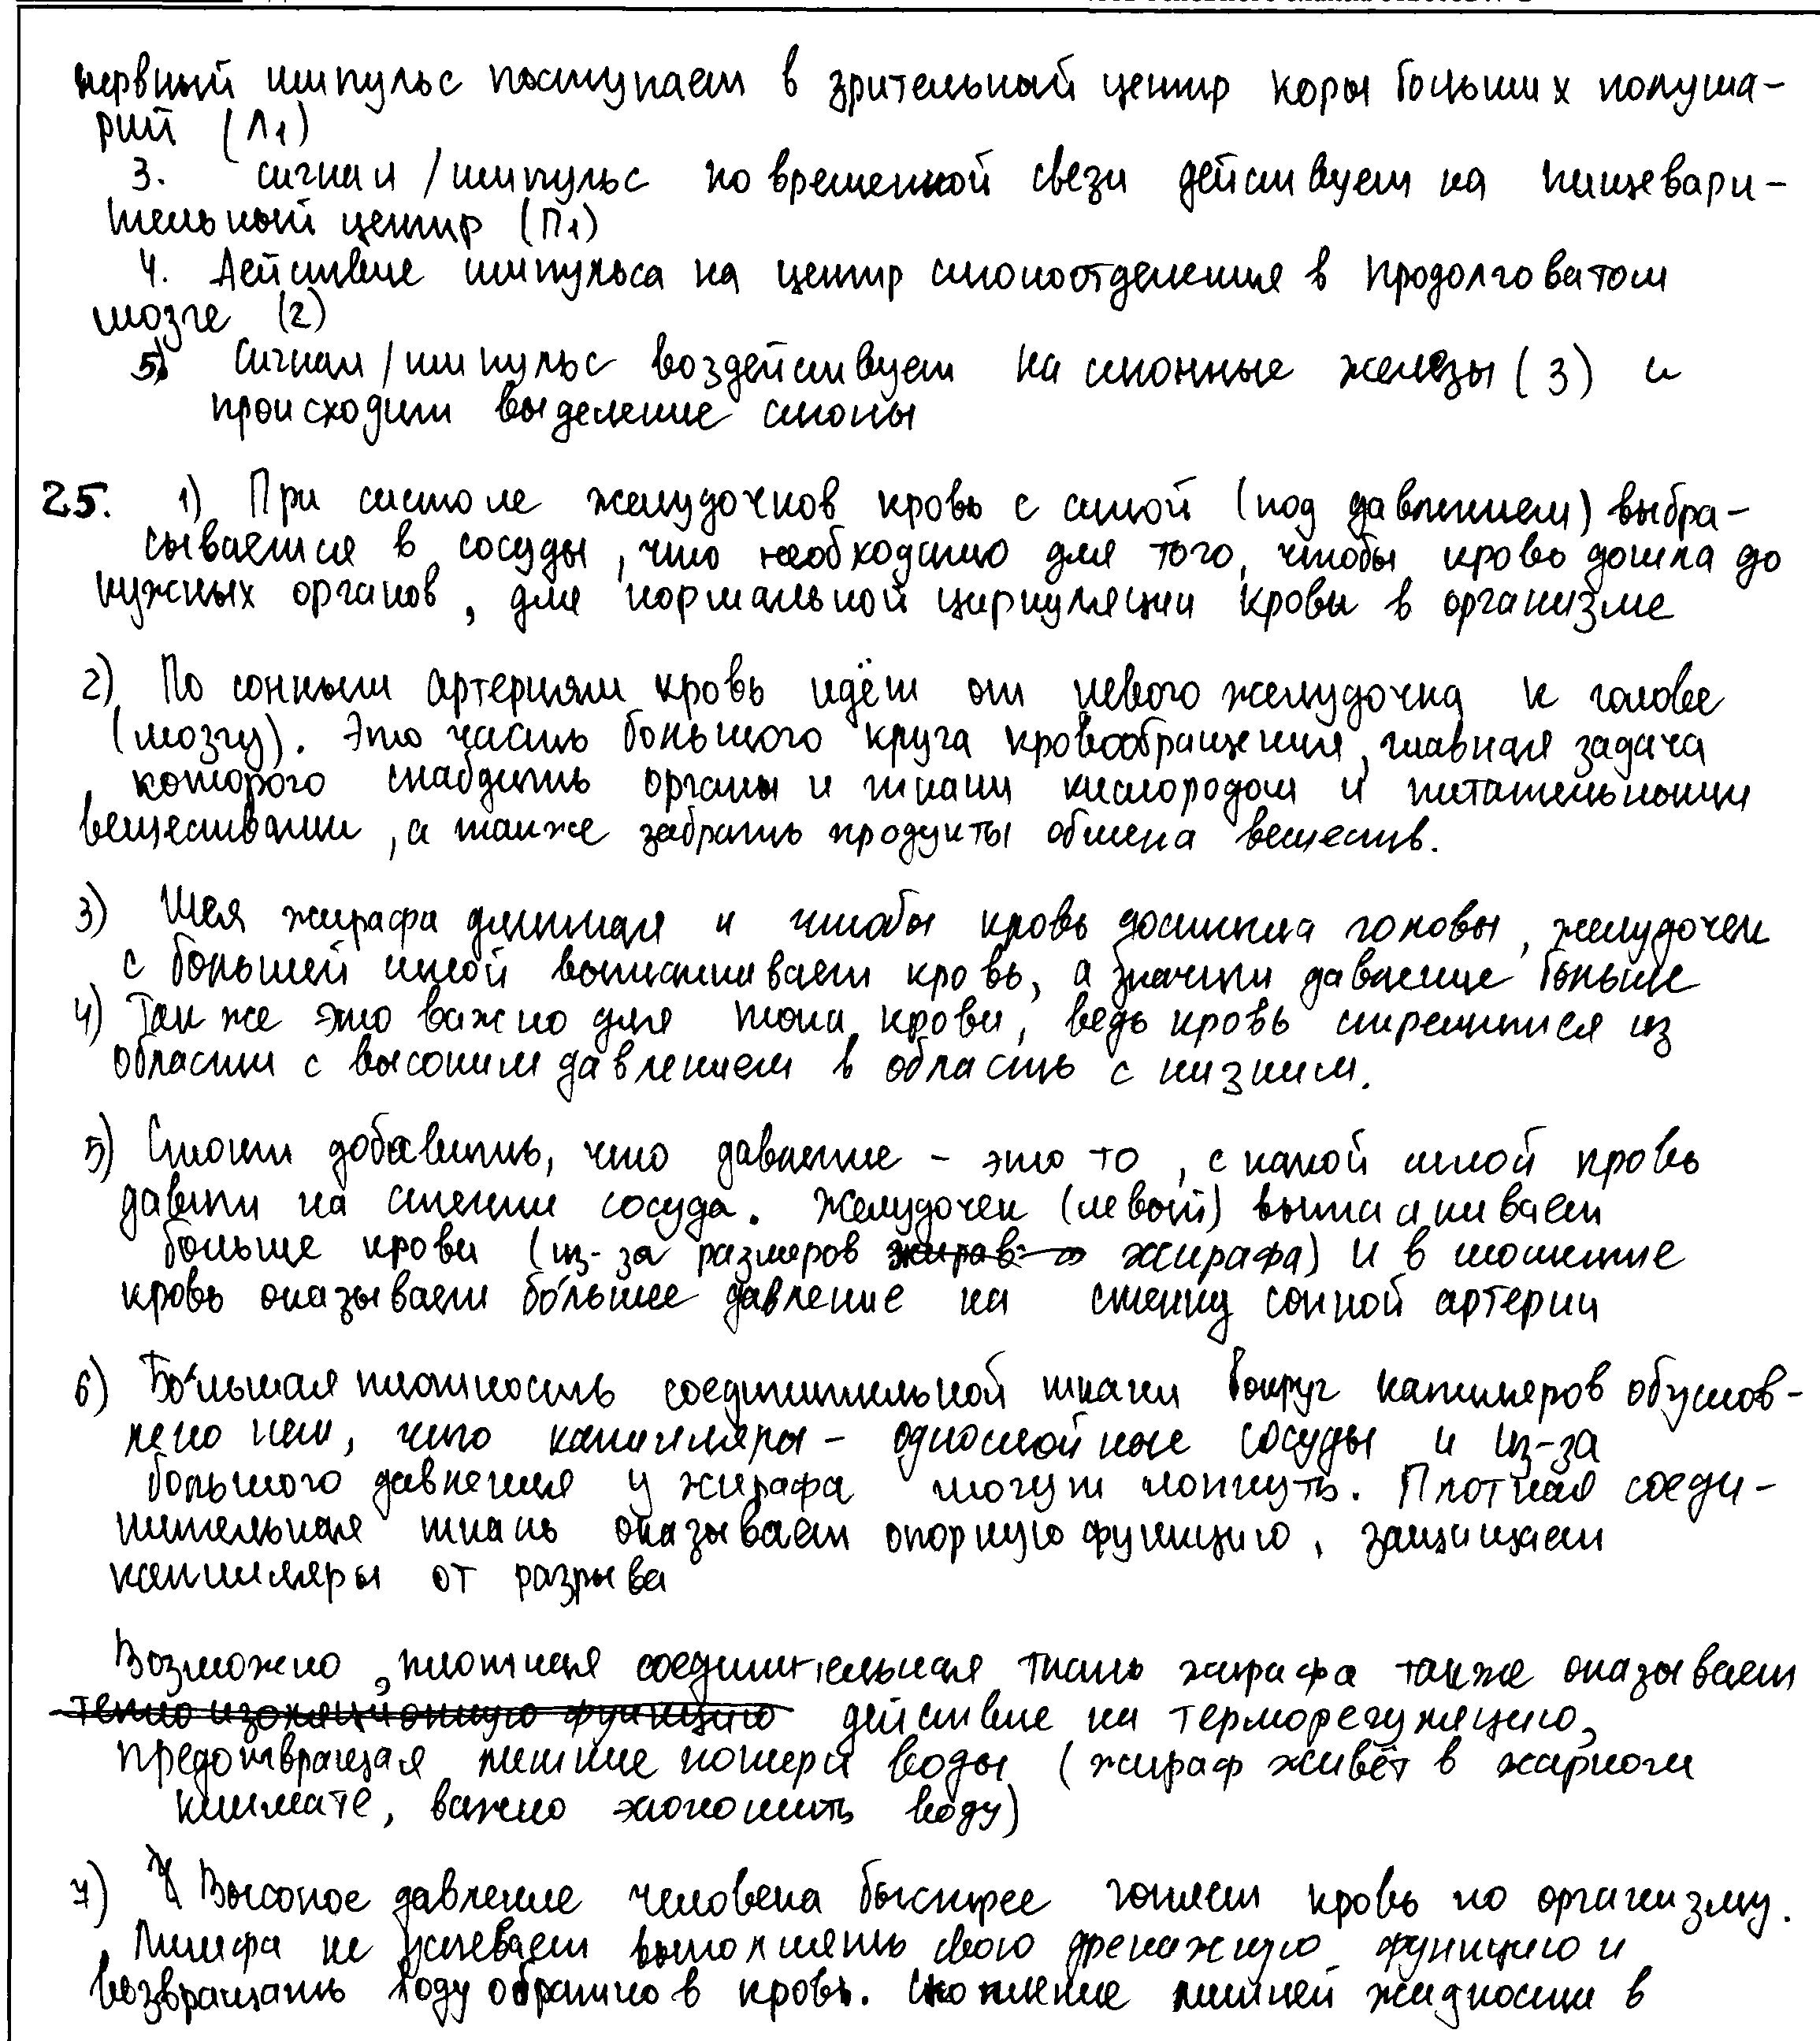 нервный импульс поступает в зрительный центр коры больших полуша-
рий (Л1)
3. сигнал / импульс по временной связи действует на пищевари-
тельный центр (П1)
4. Действие импульса на центр слюноотделения в продолговатом
мозге (2)
5) Сигнал / импульс воздействует на слюнные железы (3) и
происходит выделение слюны
25. 1) При систоле желудочков кровь с силой (под давлением) выбра-
сывается в сосуды, что необходимо для того, чтобы кровь дошла до
нужных органов, для нормальной циркуляции крови в организме
2) По сонным артериям кровь идёт от левого желудочка к голове
(мозгу). Это часть большого круга кровообращения, главная задача
которого снабдить органы и ткани кислородом и питательными
веществами, а также забрать продукты обмена веществ.
3) Шея жирафа длинная и чтобы кровь достигла головы, желудочек
с большей силой выталкивает кровь, а значит давление больше
4) Так же это важно для тока крови, ведь кровь стремится из
области с высоким давлением в область с низким.
5) Стоит добавить, что давление – это то, с какой силой кровь
давит на стенки сосуда. Желудочек (левый) выталкивает
больше крови (из-за размеров жирафа) и в
кровь оказывает бо́льшее давление на стенку сонной артерии
6) Бо́льшая плотность соединительной ткани вокруг капилляров обуслов-
лено тем, что капилляры – однослойные сосуды и из-за
большого давления у жирафа могут лопнуть. Плотная соеди-
нительная ткань оказывает опорную функцию, защищает
капилляры от разрыва
Возможно, плотная соединительная ткань жирафа также оказывает
теплоизоляционную функцию действие на терморегуляцию,
предотвращая лишние потери воды (жираф живёт в жарком
климате, важно экономить воду)
7) Высокое давление человека быстрее гоняет кровь по организму.
Лимфа не успевает выполнять свою дренажную функцию и
возвращать воду обратно в кровь. Скопление лишней жидкости в